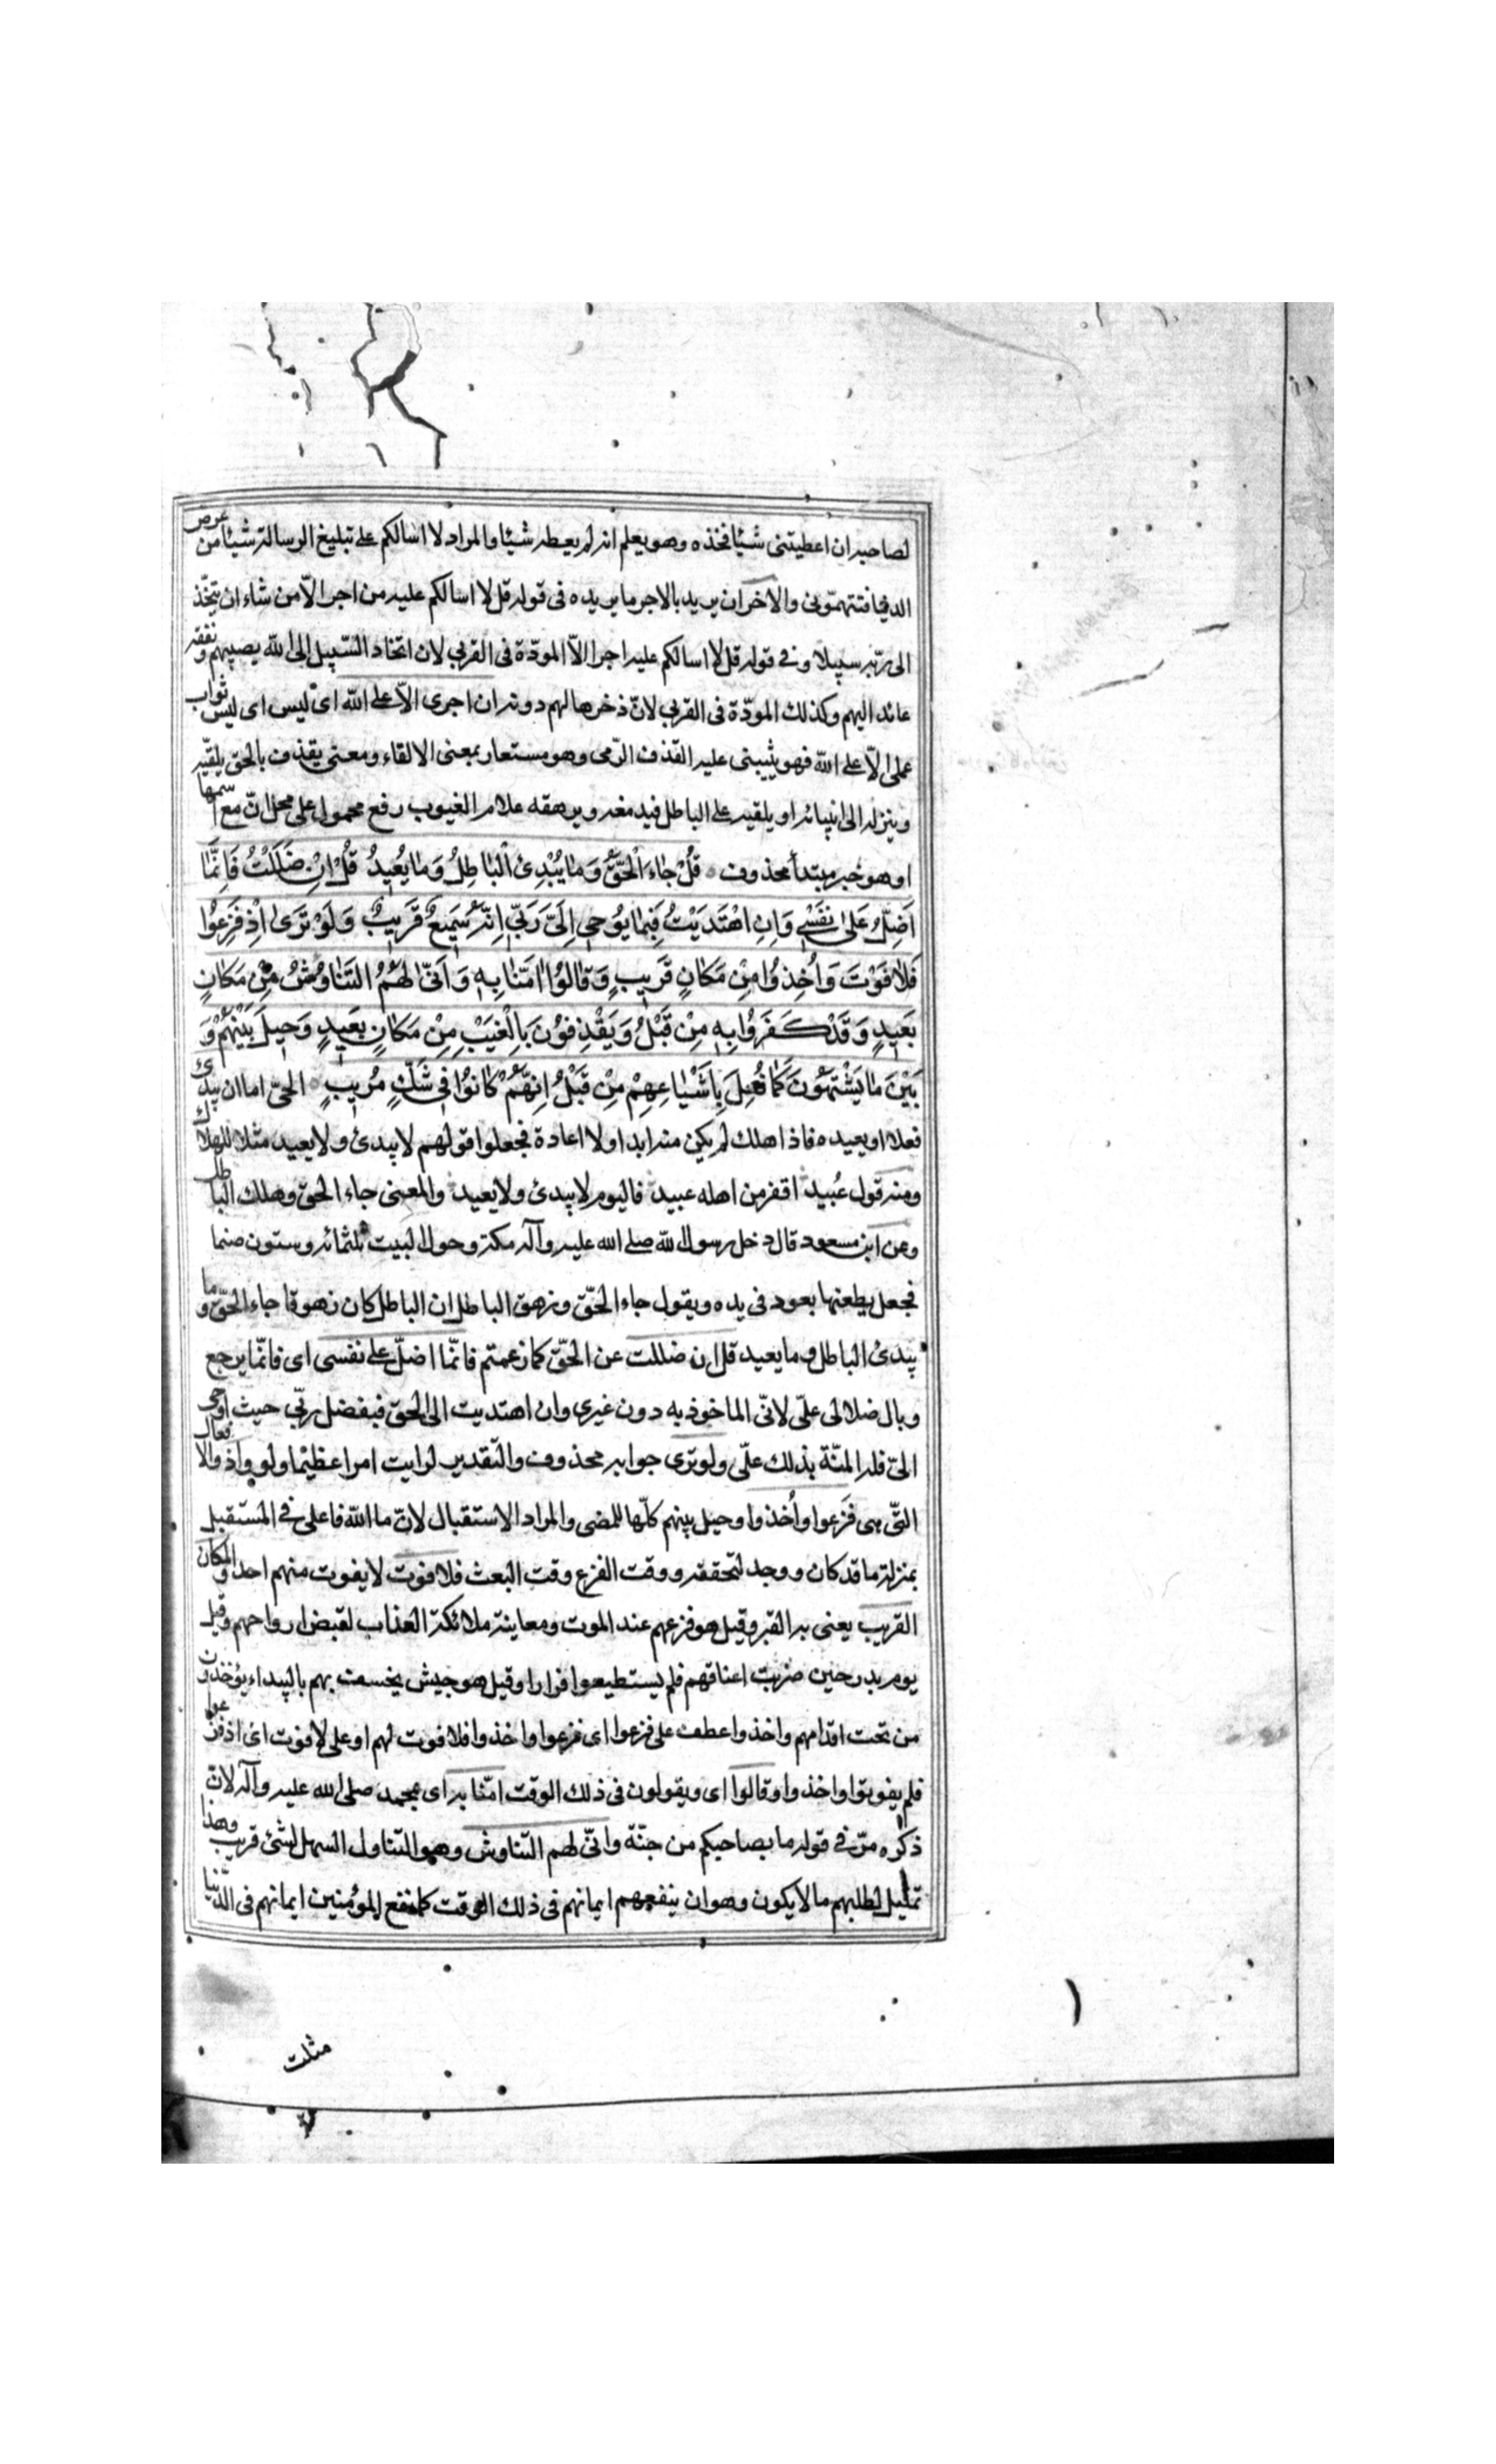 لصاحبه ان اعطيتنى شيئا فخذه وهو يعلم انه لم يعطه شيئا والمراد لا اسالكم على تبليغ الرسالة شيئا من عرض
الدنيا فتتهمونى والاخر ان يريد بالاجر ما يريده فى قوله قل لا اسالكم عليه من اجر الّا من شاء ان يتّخذ
الى ربّه سبيلا وفى قوله قل لا اسالكم عليه اجرا الّا المودّة فى القربى لان اتخاذ السّبيل الى الله يصيبهم ونفعه
عائد اليهم وكذلك المودّة فى القربى لانّ ذخرها لهم دونه ان اجرى الّا على الله اى ليس اى ليس ثواب
عملى الّا على الله فهو يثيبنى عليه القذف الرّمى وهو مستعار بمعنى الالقاء ومعنى يقذف بالحق يلقيه
وينزله الى انبيائه او يلقيه على الباطل فيدمغه ويزهقه علام الغيوب رفع محمول على محل انّ مع اسمها
او هو خبر مبتدأ محذوف قُلْ جَاءَ الْحَقُّ وَمَا يُبْدِئُ الْبَاطِلُ وَمَا يُعِيدُ قُلْ اِنْ ضَلَلْتُ فَاِنَّمَا
اَضِلُّ عَلىٰ نَفْسِي وَاِنِ اهْتَدَيْتُ فَبِمَا يُوحِي اِلَيَّ رَبِّي اِنَّهُ سَمِيعٌ قَرِيبٌ وَلَوْ تَرىٰ اِذْ فَزِعُوا
فَلَا فَوْتَ وَاُخِذُوا مِنْ مَكَانٍ قَرِيبٍ وَقَالُوا اٰمَنَّا بِهٖ وَاَنّىٰ لَهُمُ التَّنَاوُشُ مِنْ مَكَانٍ
بَعِيدٍ وَقَدْ كَفَرُوا بِهٖ مِنْ قَبْلُ وَيَقْذِفُونَ بِالْغَيْبِ مِنْ مَكَانٍ بَعِيدٍ وَحِيلَ بَيْنَهُمْ وَ
بَيْنَ مَا يَشْتَهُونَ كَمَا فُعِلَ بِاَشْيَاعِهِمْ مِنْ قَبْلُ اِنَّهُمْ كَانُوا فِي شَكٍّ مُرِيبٍ الحىّ اما ان يبدئ
فعلا او يعيده فاذا هلك لم يكن منه ابداء ولا اعادة فجعلوا قولهم لا يبدئ ولا يعيد مثلا للهلاك
ومنه قول عُبيد اقفر من اهله عبيد فاليوم لا يبدئ ولا يعيد والمعنى جاء الحق وهلك الباطل
وعن ابن مسعود قال دخل رسول الله صلى الله عليه وآله مكة وحول البيت ثلثمائه وستون صنما
فجعل يطعنها بعود فى يده ويقول جاء الحقّ وزهق الباطل ان الباطل كان زهوقا جاء الحقّ وما
يبدئ الباطل وما يعيد قل ان ضللت عن الحقّ كما زعمتم فانّما اضلّ على نفسى اى فانّما يرجع
وبال ضلالى علىّ لانّى الماخوذ به دون غيرى وان اهتديت الى الحق فبفضل ربّى حيث اوحى
الىّ فله المنّة بذلك علىّ ولو ترى جوابه محذوف والتقدير لرايت امرا عظيما ولو واذ والافعال
التى هى فَزعوا واُخذوا وحيل بينهم كلّها للمضى والمراد الاستقبال لانّ ما الله فاعله فى المستقبل
بمنزلة ما قد كان ووجد لتحققه ووقت الفزع وقت البعث فلا فوت لا يفوت منهم احد والمكان
القريب يعنى به القبر وقيل هو فزعهم عند الموت ومعاينة ملائكة العذاب لقبض ارواحهم وقيل
يوم بدر حين ضربت اعناقهم فلم يستطيعوا فرارا وقيل هو جيش يخسف بهم بالبيداء يؤخذون
من تحت اقدامهم واخذوا عطف على فزعوا اى فزعوا واخذوا فلا فوت لهم او على لا فوت اى اذ فزعوا
فلم يفوتوا واخذوا وقالوا اى ويقولون فى ذلك الوقت امنّا به اى بمحمد صلى الله عليه وآله لانّ
ذكره مرّ فى قوله ما بصاحبكم من جنّة وانّى لهم التناوش وهو التناول السهل لشئ قريب وهذا
تمثيل لطلبهم ما لا يكون وهو ان ينفعهم ايمانهم فى ذلك الوقت كما نفع المؤمنين ايمانهم فى الدّنيا
مثلت